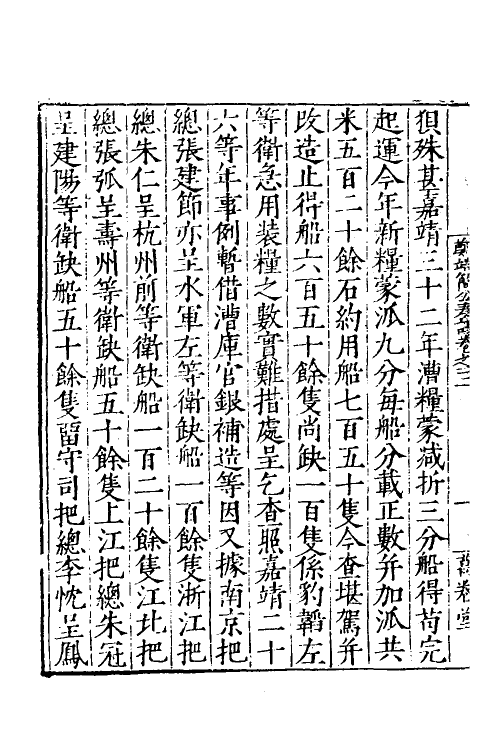 狽殊甚嘉靖三十二年漕糧蒙減折三分船得苟完
起運今年新糧蒙派九分每船分載正數并加派共
米五百二十餘石約用船七百五十隻今查堪駕并
改造止得船六百五十餘隻尚缺一百隻係豹韜左
等衛急用裝糧之數實難措處呈乞查照嘉靖二十
六等年事例暫借漕庫官銀補造等因又據南京把
總張建節亦呈水軍左等衛缺船一百餘隻浙江把
總朱仁呈杭州前等衛缺船一百二十餘隻江北把
總張弧呈壽州等衛缺船五十餘隻上江把總朱冠
呈建陽等衛缺船五十餘隻留守司把總李忱呈鳳
鄭端簡公奏議卷之三
一